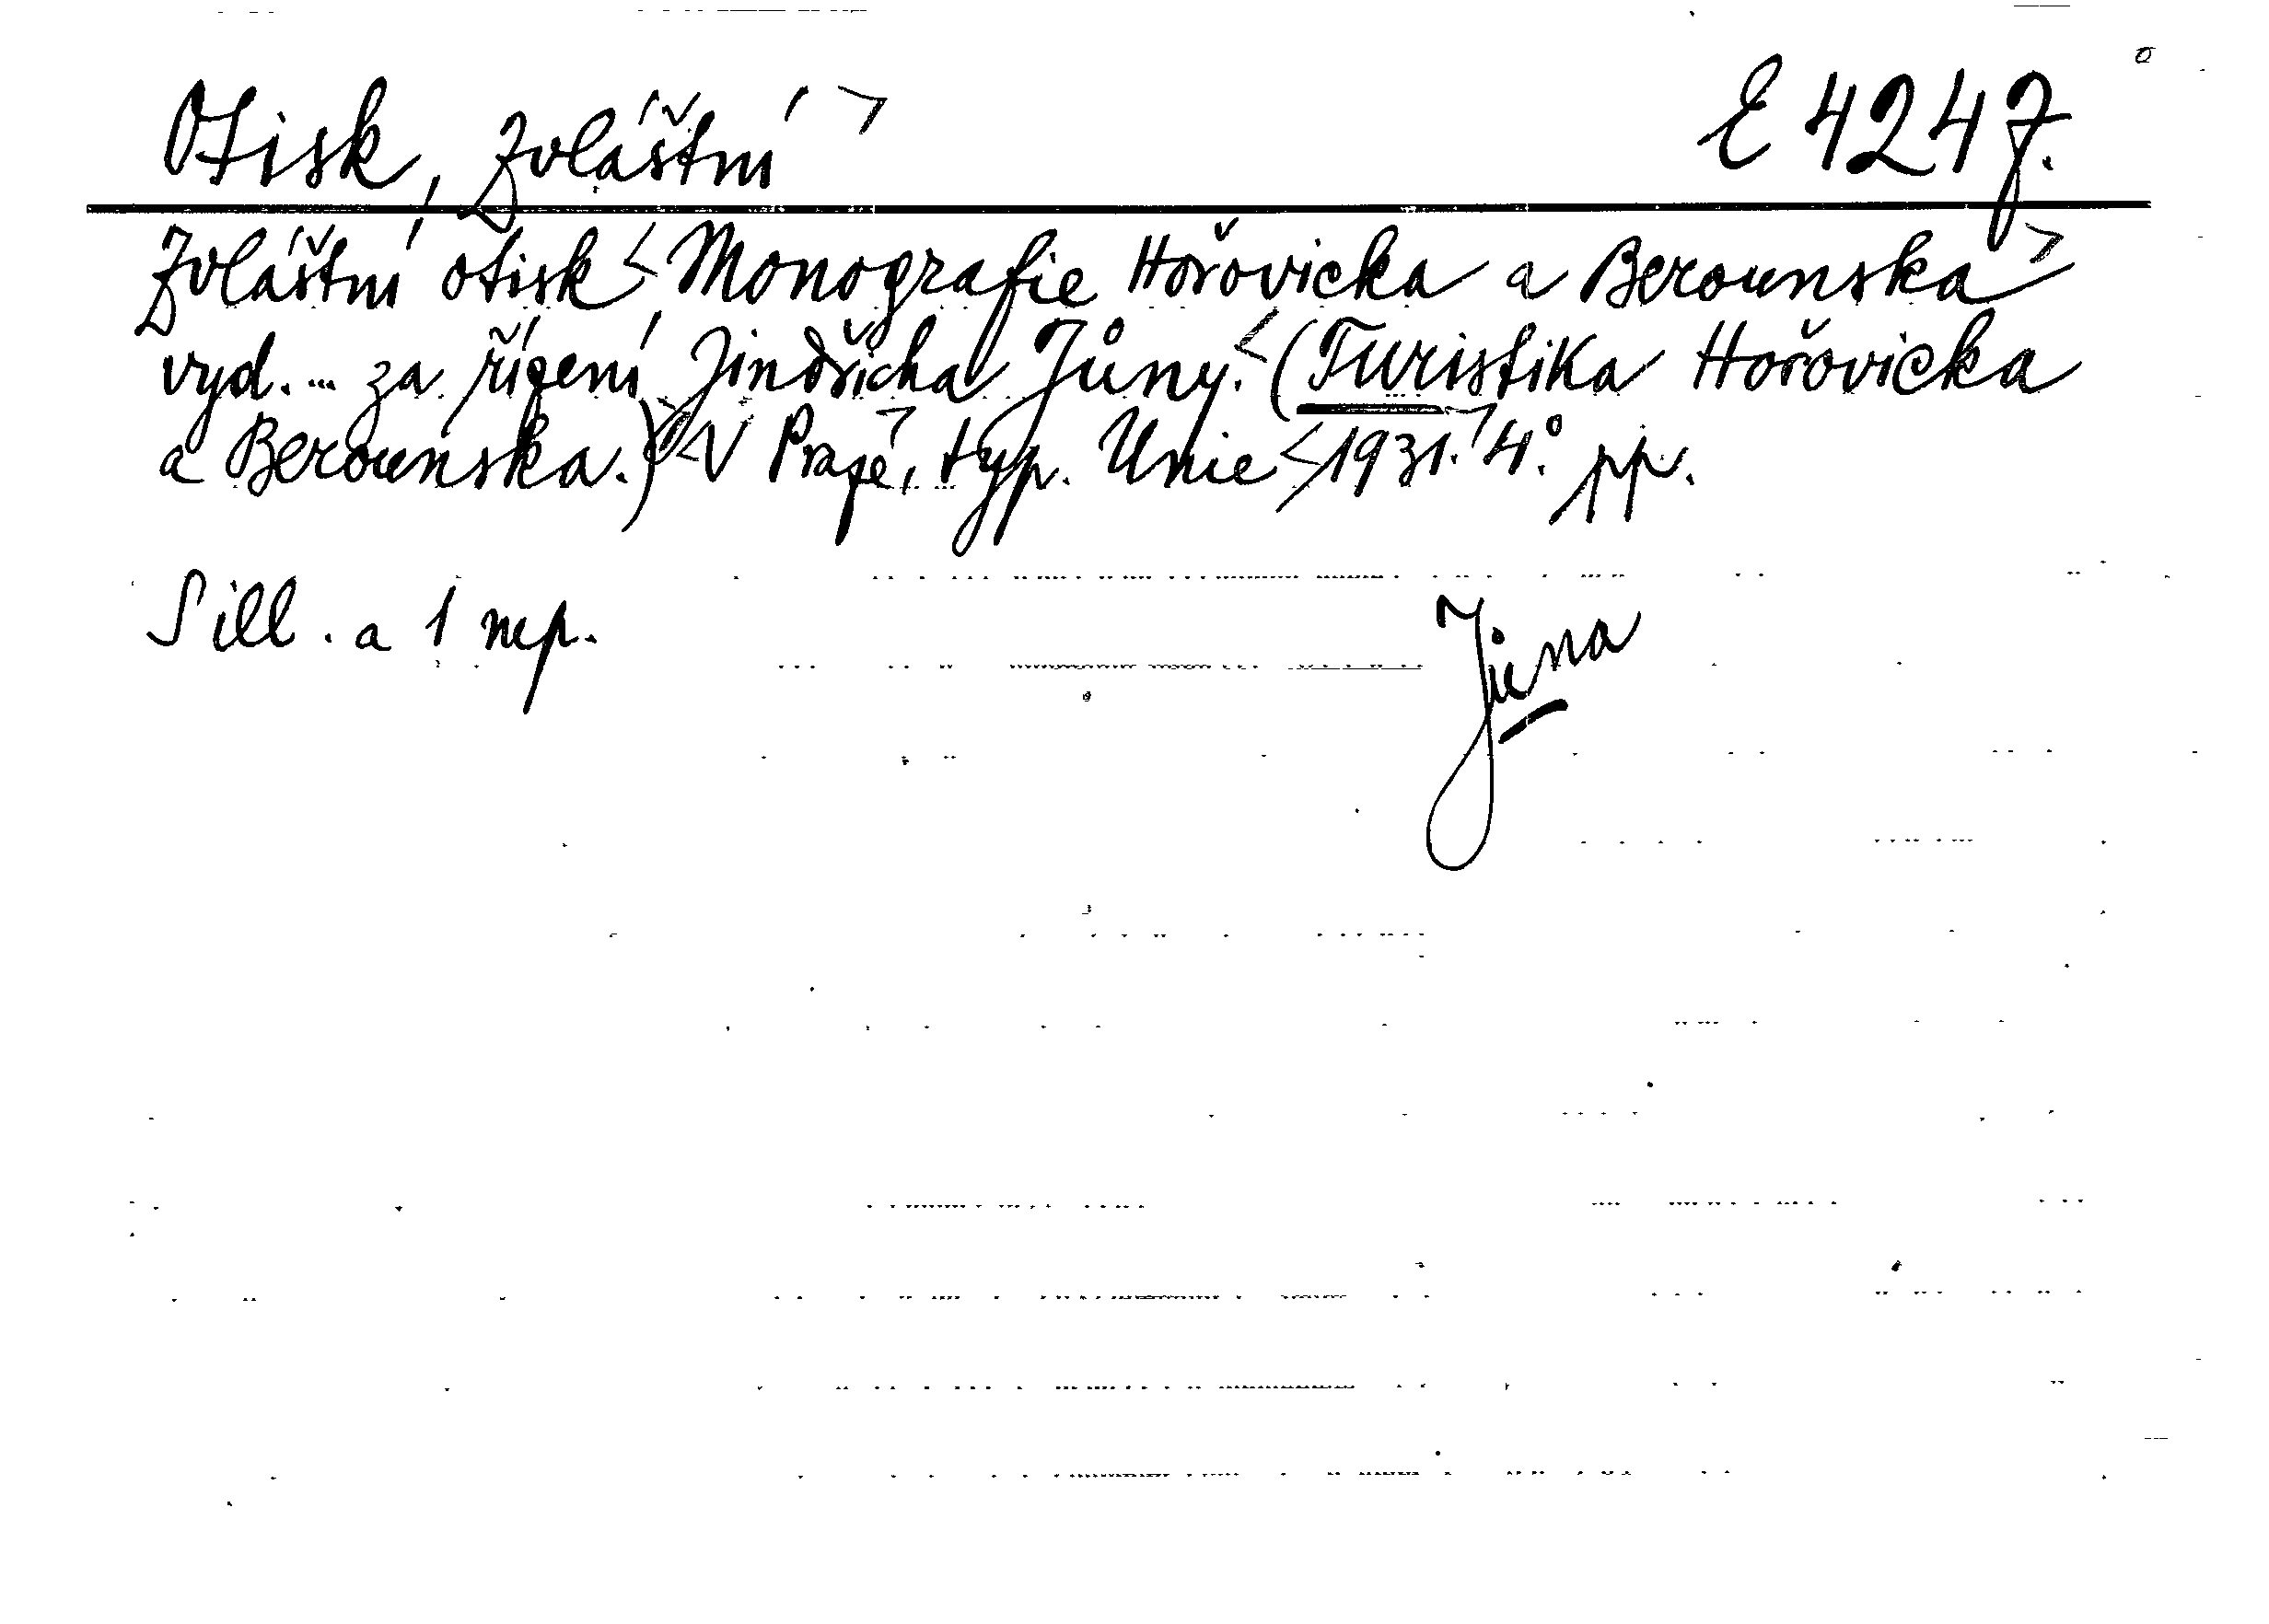 Otisk, zvláštní > E 4247.
Zvláštní otisk < Monografie Hořovicka a Berounska >
vyd. ... za řízení Jindřicha Jůny. < (Turistika Hořovicka
a Berounska.) > < V Praze >, typ. Unie < 1931. > 4°. pp.
S ill. a 1 nep.
Jůna